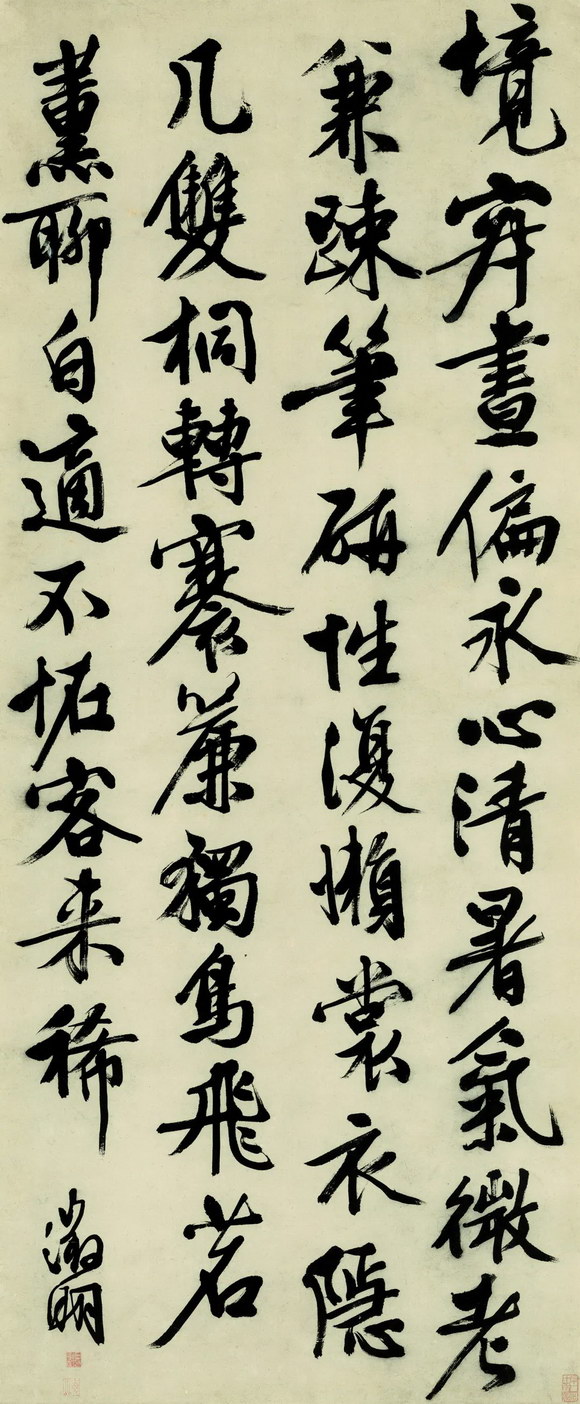 境寂晝偏永心清暑氣微老
兼疎筆研性漫懶裳衣隱
几雙桐轉褰簾獨鳥飛茗
薰聊自適不恠客来稀
徵明